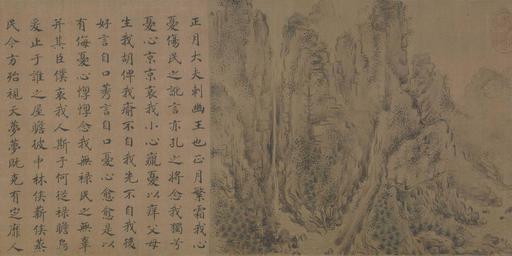 正月大夫刺幽王也正月繁霜我心
憂傷民之訛言亦孔之將念我獨兮
憂心京京哀我小心癙憂以痒父母
生我胡俾我瘉不自我先不自我後
好言自口莠言自口憂心愈愈是以
有侮憂心惸惸念我無祿民之無辜
并其臣僕哀我人斯于何從祿瞻烏
爰止于誰之屋瞻彼中林侯薪侯蒸
民今方殆視天夢夢既克有定靡人